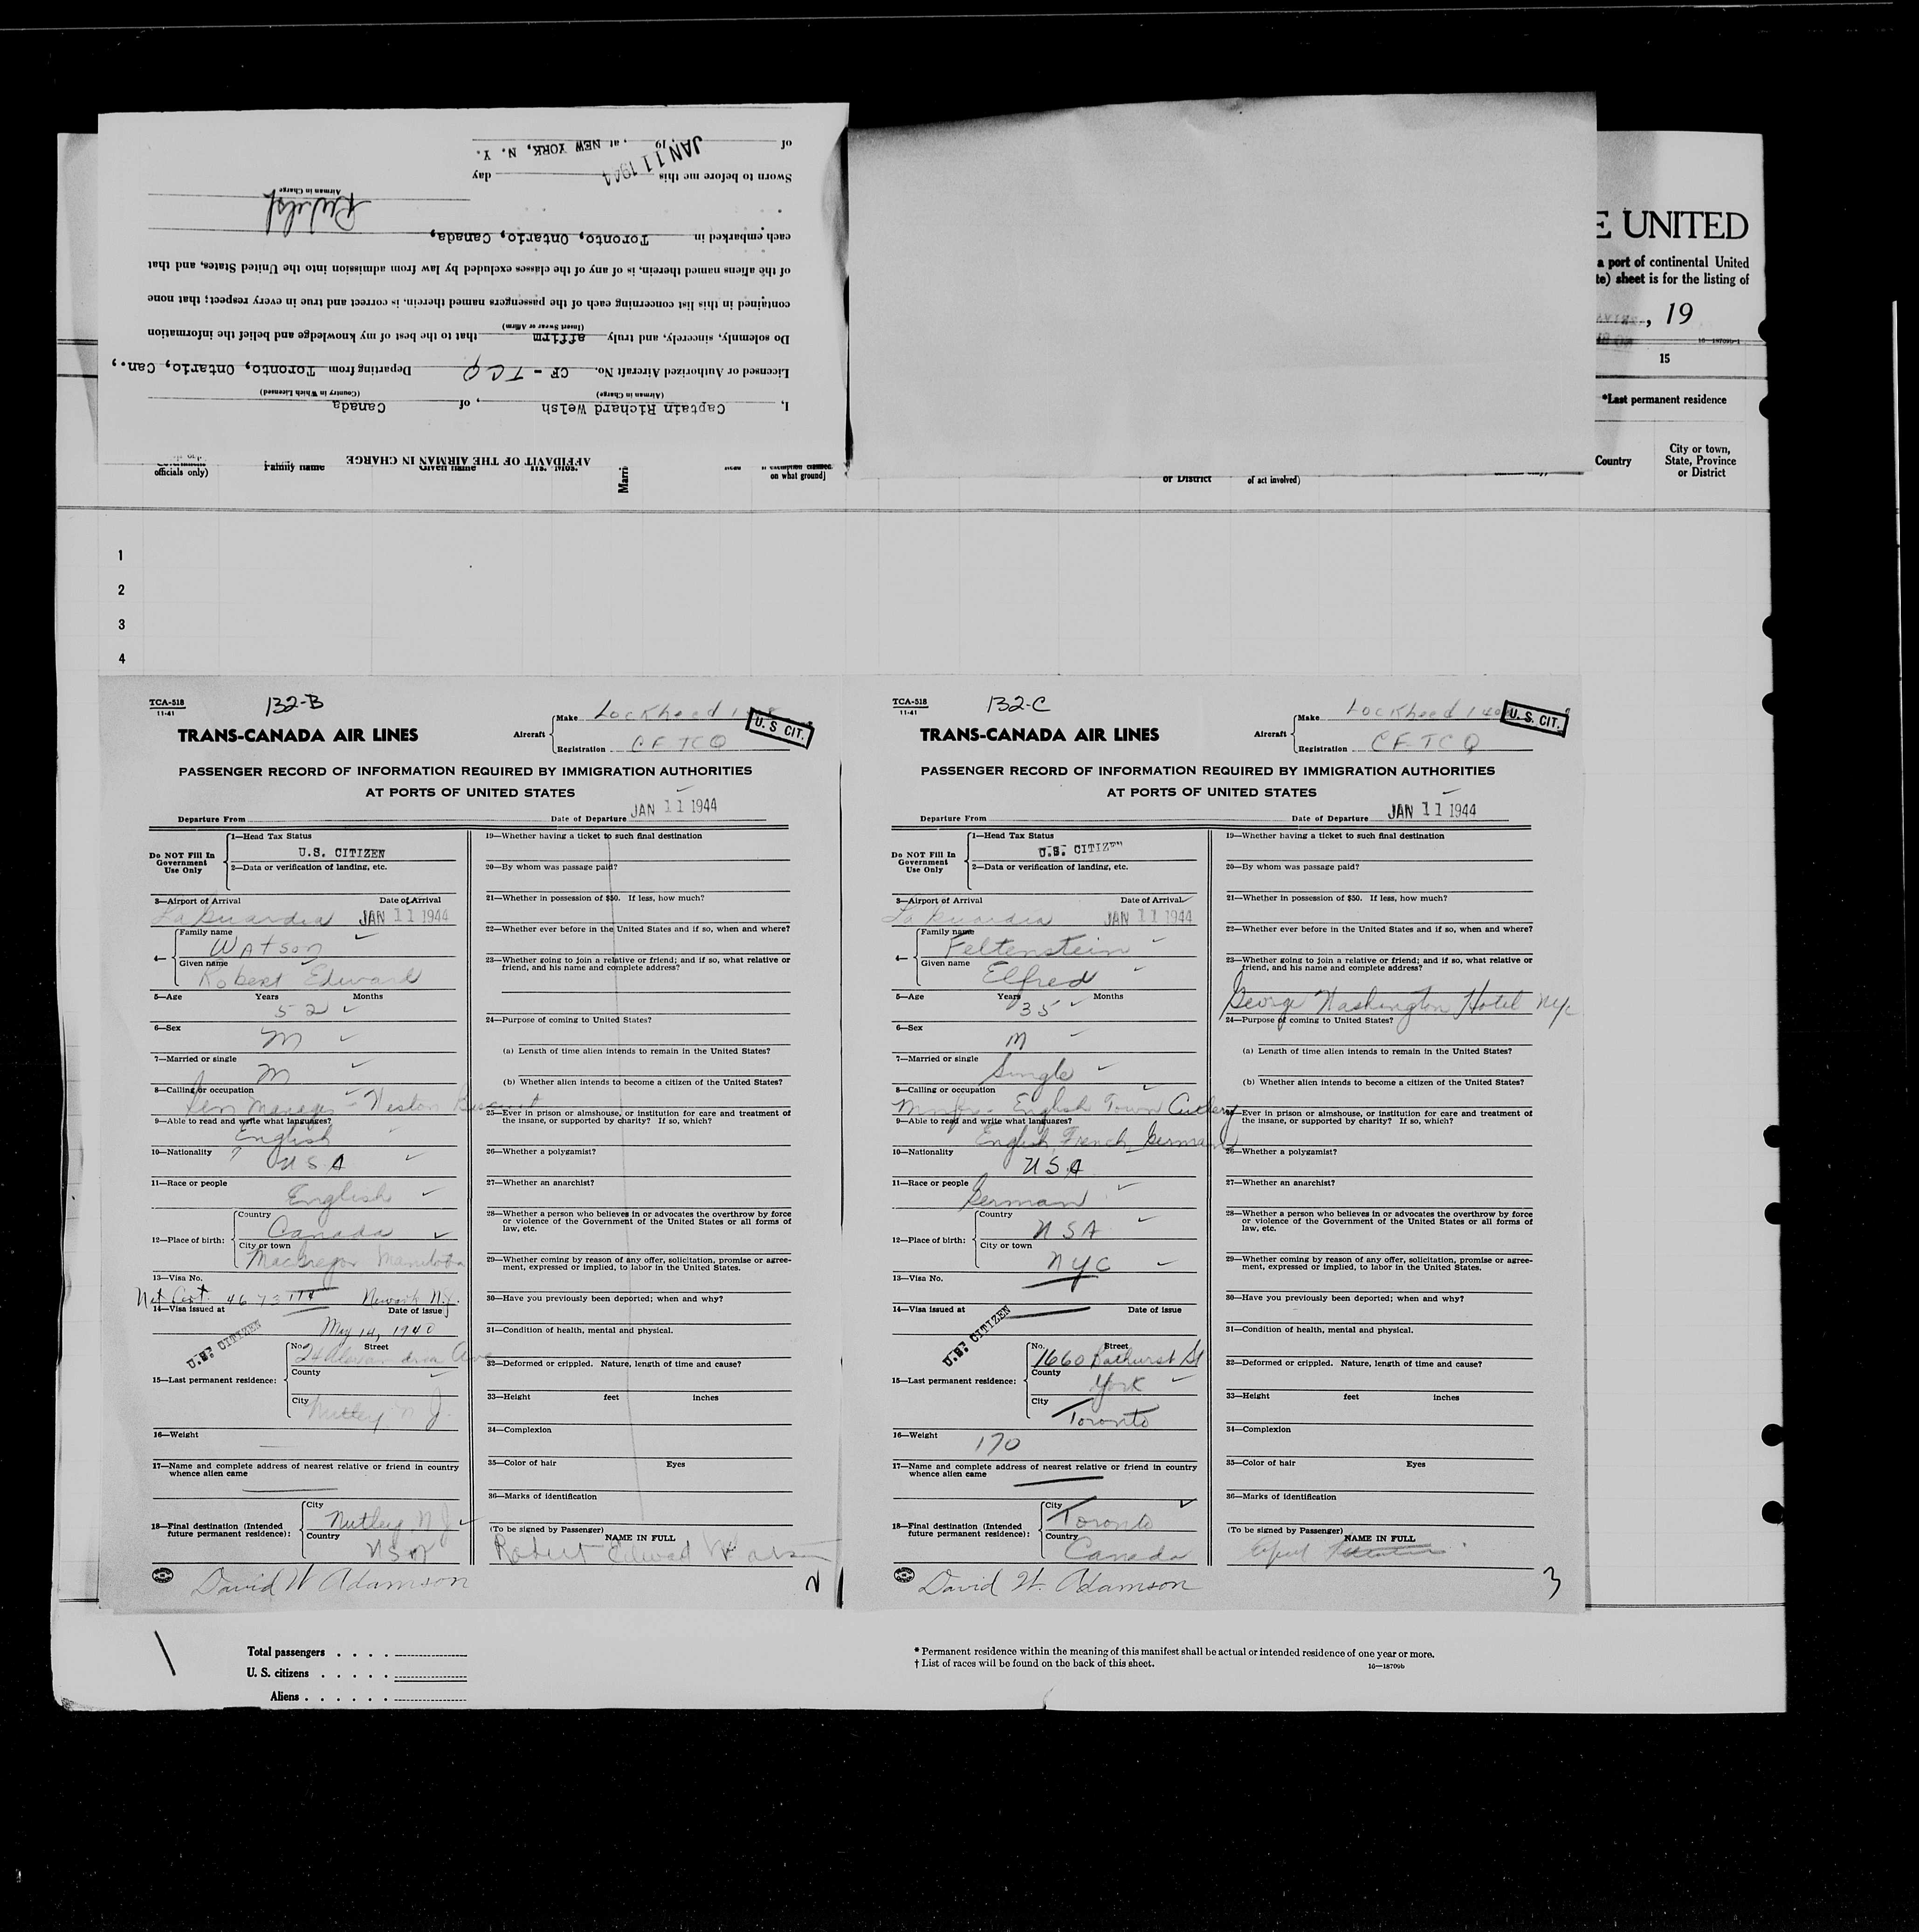 AFFIDAVIT OF THE AIRMAN IN CHARGE
I, Captain Richard Welsh, of Canada
(Airman in Charge) (Country in Which Licensed)
Licensed or Authorized Aircraft No. CF - TCQ Departing from Toronto, Ontario, Can.,
Do solemnly, sincerely, and truly affirm that to the best of my knowledge and belief the information
(Insert Swear or Affirm)
contained in this list concerning each of the passengers named therein, is correct and true in every respect; that none
of the aliens named therein, is of any of the classes excluded by law from admission into the United States, and that
each embarked in Toronto, Ontario, Canada,
Airman in Charge
Sworn to before me this JAN 11 1944 day
of 19 , at NEW YORK, N. Y.
E UNITED
a port of continental United
te) sheet is for the listing of
, 19
16—18709b-1
15
*Last permanent residence
Country
City or town, State, Province or District
officials only)
Family name
Given name
on what ground]
or District
of act involved)
1
2
3
4
TCA-518
11-41
132-B
TRANS-CANADA AIR LINES
Aircraft
Make Lockheed
Registration CF-TCQ
U. S. CIT.
PASSENGER RECORD OF INFORMATION REQUIRED BY IMMIGRATION AUTHORITIES
AT PORTS OF UNITED STATES
Departure From Date of Departure JAN 11 1944
Do NOT Fill In Government Use Only
1—Head Tax Status
U.S. CITIZEN
2—Data or verification of landing, etc.
3—Airport of Arrival Date of Arrival
La Guardia JAN 11 1944
4—
Family name
Watson
Given name
Robert Edward
5—Age Years Months
52
6—Sex
M
7—Married or single
M
8—Calling or occupation
Manager - Weston
9—Able to read and write what languages?
English
10—Nationality
USA
11—Race or people
English
12—Place of birth:
Country
Canada
City or town
MacGregor Manitoba
13—Visa No.
Newark N.J.
14—Visa issued at Date of issue
May 14, 1940
U.S. CITIZEN
15—Last permanent residence:
No. Street
24 Alexandria Ave
County
City
Nutley N J.
16—Weight
17—Name and complete address of nearest relative or friend in country
whence alien came
18—Final destination (Intended
future permanent residence):
City
Nutley N J
Country
USA
19—Whether having a ticket to such final destination
20—By whom was passage paid?
21—Whether in possession of $50. If less, how much?
22—Whether ever before in the United States and if so, when and where?
23—Whether going to join a relative or friend; and if so, what relative or
friend, and his name and complete address?
24—Purpose of coming to United States?
(a) Length of time alien intends to remain in the United States?
(b) Whether alien intends to become a citizen of the United States?
25—Ever in prison or almshouse, or institution for care and treatment of
the insane, or supported by charity? If so, which?
26—Whether a polygamist?
27—Whether an anarchist?
28—Whether a person who believes in or advocates the overthrow by force
or violence of the Government of the United States or all forms of
law, etc.
29—Whether coming by reason of any offer, solicitation, promise or agree-
ment, expressed or implied, to labor in the United States.
30—Have you previously been deported; when and why?
31—Condition of health, mental and physical.
32—Deformed or crippled. Nature, length of time and cause?
33—Height feet inches
34—Complexion
35—Color of hair Eyes
36—Marks of identification
(To be signed by Passenger) NAME IN FULL
Robert Edward Watson
David W Adamson
2
TCA-518
11-41
132-C
TRANS-CANADA AIR LINES
Aircraft
Make Lockheed
Registration CF-TCQ
U. S. CIT.
PASSENGER RECORD OF INFORMATION REQUIRED BY IMMIGRATION AUTHORITIES
AT PORTS OF UNITED STATES
Departure From Date of Departure JAN 11 1944
Do NOT Fill In Government Use Only
1—Head Tax Status
U.S. CITIZEN
2—Data or verification of landing, etc.
3—Airport of Arrival Date of Arrival
La Guardia JAN 11 1944
4—
Family name
Feltenstein
Given name
Elfred
5—Age Years Months
35
6—Sex
M
7—Married or single
Single
8—Calling or occupation
English Town Cutlery
9—Able to read and write what languages?
English French German
10—Nationality
USA
11—Race or people
German
12—Place of birth:
Country
USA
City or town
NYC
13—Visa No.
14—Visa issued at Date of issue
U.S. CITIZEN
15—Last permanent residence:
No. Street
1660 Bathurst St
County
York
City
Toronto
16—Weight
170
17—Name and complete address of nearest relative or friend in country
whence alien came
18—Final destination (Intended
future permanent residence):
City
Toronto
Country
Canada
19—Whether having a ticket to such final destination
20—By whom was passage paid?
21—Whether in possession of $50. If less, how much?
22—Whether ever before in the United States and if so, when and where?
23—Whether going to join a relative or friend; and if so, what relative or
friend, and his name and complete address?
George Washington Hotel NYC
24—Purpose of coming to United States?
(a) Length of time alien intends to remain in the United States?
(b) Whether alien intends to become a citizen of the United States?
25—Ever in prison or almshouse, or institution for care and treatment of
the insane, or supported by charity? If so, which?
26—Whether a polygamist?
27—Whether an anarchist?
28—Whether a person who believes in or advocates the overthrow by force
or violence of the Government of the United States or all forms of
law, etc.
29—Whether coming by reason of any offer, solicitation, promise or agree-
ment, expressed or implied, to labor in the United States.
30—Have you previously been deported; when and why?
31—Condition of health, mental and physical.
32—Deformed or crippled. Nature, length of time and cause?
33—Height feet inches
34—Complexion
35—Color of hair Eyes
36—Marks of identification
(To be signed by Passenger) NAME IN FULL
David W. Adamson
3
Total passengers . . . .
U. S. citizens . . . . .
Aliens . . . . . .
* Permanent residence within the meaning of this manifest shall be actual or intended residence of one year or more.
† List of races will be found on the back of this sheet.
16—18709b